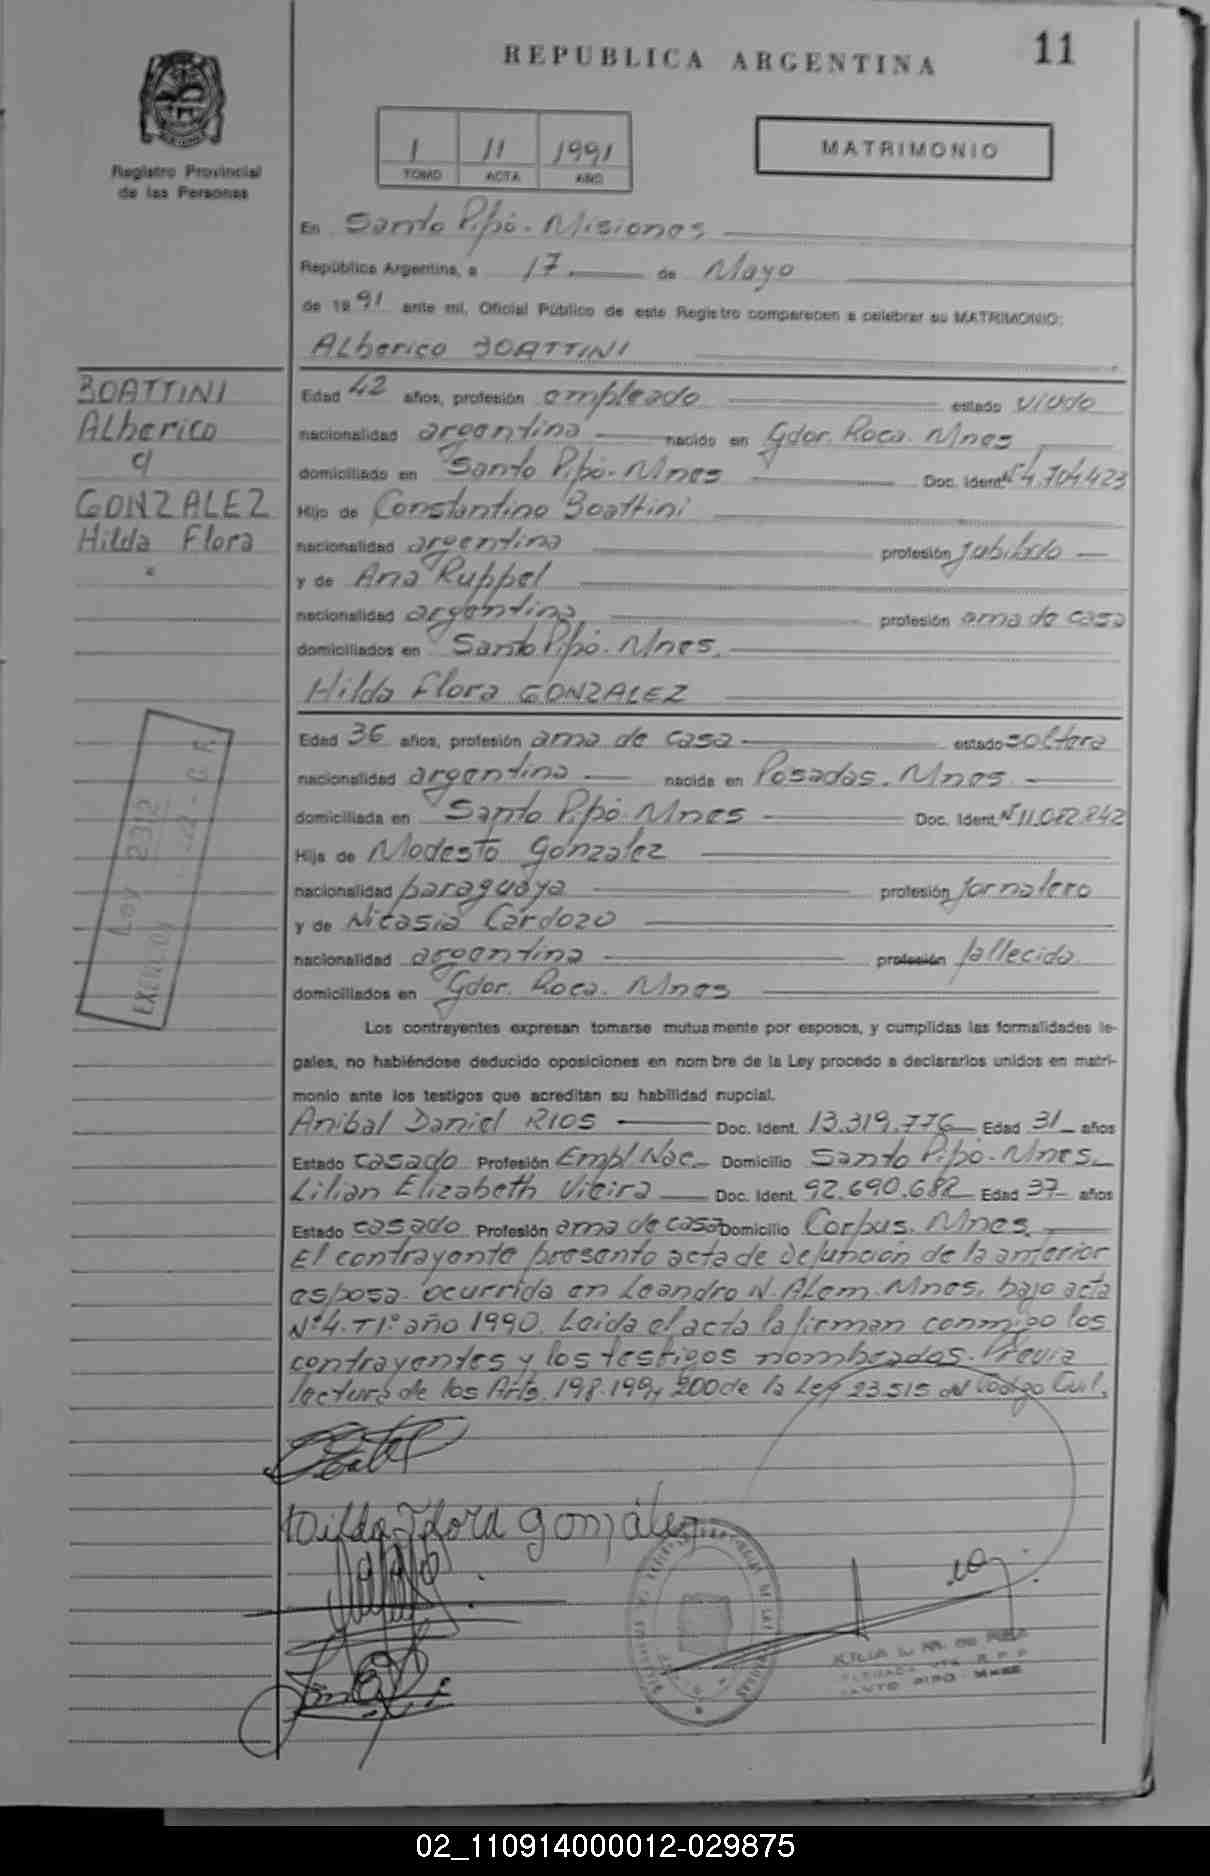 REPUBLICA ARGENTINA
11
Registro Provincial
de las Personas
1 11 1991
TOMO ACTA AÑO
MATRIMONIO
En Santo Pipó - Misiones
República Argentina, a 17 de Mayo
de 19 91 ante mí, Oficial Público de este Registro comparecen a celebrar su MATRIMONIO:
Alberico BOATTINI
BOATTINI
Alberico
y
GONZALEZ
Hilda Flora
Edad 42 años, profesión empleado estado viudo
nacionalidad argentina nacido en Gdor. Roca. Mnes
domiciliado en Santo Pipó - Mnes Doc. Ident. Nº 4.704.423
Hijo de Constantino Boattini
nacionalidad argentina profesión jubilado
y de Ana Ruppel
nacionalidad argentina profesión ama de casa
domiciliados en Santo Pipó - Mnes.
Hilda Flora GONZALEZ
Edad 36 años, profesión ama de casa estado soltera
nacionalidad argentina nacida en Posadas. Mnes.
domiciliada en Santo Pipó. Mnes Doc. Ident. Nº 11.082.842
Hija de Modesto Gonzalez
nacionalidad paraguaya profesión jornalero
y de Nicasia Cardozo
nacionalidad argentina profesión fallecida
domiciliados en Gdor. Roca. Mnes
Ley 2312
Los contrayentes expresan tomarse mutuamente por esposos, y cumplidas las formalidades le-
gales, no habiéndose deducido oposiciones en nombre de la Ley procedo a declararlos unidos en matri-
monio ante los testigos que acreditan su habilidad nupcial.
Anibal Daniel RIOS Doc. Ident. 13.319.776 Edad 31 años
Estado casado Profesión Empl Nac. Domicilio Santo Pipó - Mnes.
Lilian Elizabeth Vieira Doc. Ident. 92.690.682 Edad 37 años
Estado casado Profesión ama de casa Domicilio Corpus. Mnes.
El contrayente presento acta de defunción de la anterior
esposa. ocurrida en Leandro N. Alem. Mnes. bajo acta
Nº 4. T 1º año 1990. Leida el acta la firman conmigo los
contrayentes y los testigos nombrados. Previa
lectura de los Arts. 198. 199 y 200 de la Ley 23.515 del Codigo Civil.
Hilda Flora González
SANTO PIPO MNES
02_110914000012-029875